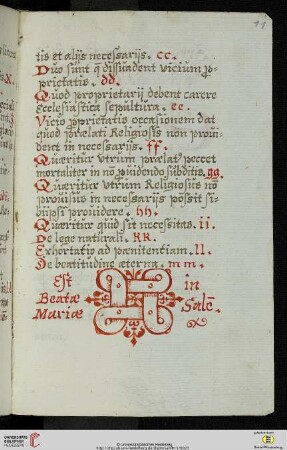 11
tis et alijs necessarijs. cc.
Duo sunt q̄ dissuadent vicium p̱-
prietatis. dd.
Quod proprietarij debent carere
Ecclesiastica sepultura. ee.
Vicio p̱prietatis occasionem dat
quod prælati Religiosis non prouí
dent in necessarijs. ff.
Quæritur vtrum prælat9 peccet
mortaliter in nō ꝓuidendo subditis. gg.
Quæritur vtrum Religiosus nō
prouisus in necessarijs possit si-
bijpsi prouidere. hh.
Quæritur quid sit necessitas. ii.
De lege naturali. kk.
Exhortatio ad pœnitentiam. ll.
De beatitudine æterna. mm.
Est in
Beatæ Salē
Mariæ
UNIVERSITÄTS-
BIBLIOTHEK
HEIDELBERG
© Universitätsbibliothek Heidelberg